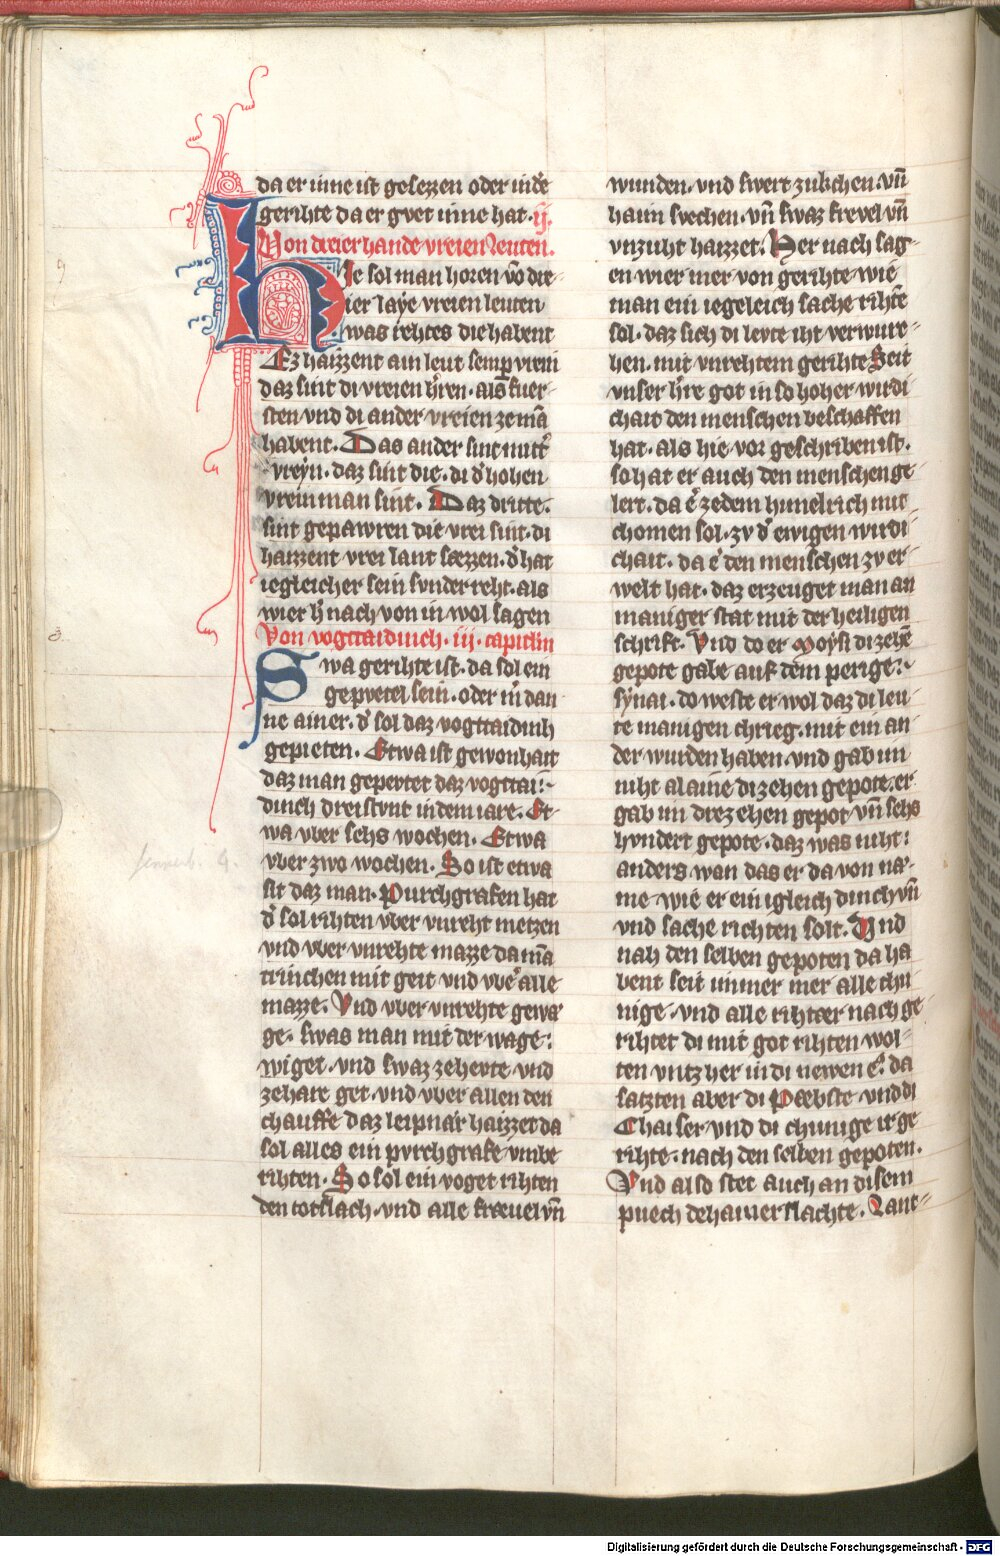 da er inne ist gesezzen oder in dͤe
gerihte da er gvet inne hat · ij.
Von dreier hande vreien leuten.
Hie sol man horen vō dre-
ier laẏe vreien leuten
was rehtes die habent
Ez haizzent ain leut semꝑ vreẏ
daz sint di vreien h̄ren · als fuer-
sten vnd di ander vreien ze mā
habent. Das ander sint mitt͛
vreẏn · daz sint die · di d͛ hohen
vrein man sint. Daz dritte.
sint gepawren die vrei sint · di
haizzent vrei lant sæzzen · d͛ hat
iegleicher sein svnder reht · als
wier h͛ nach von in wol sagen
Von vogttaidinch · iij · capitlin
Swa gerihte ist · da sol ein
gepvetel sein · oder in̄ dan
ne ainer · d͛ sol daz vogttaidinh
gepieten. Etwa ist gewonhait
daz man gepevtet daz vogttai-
dinch dreistvnt in dem iare. Et
wa vber sehs wochen. Etwa
vber zwo wochen. So ist etwa
sit daz man · Purchgrafen hat
d͛ sol rihten vber vnreht metzen
vnd vber vnrehte mazze da mā
trinchen mit geit vnd vbe͛ alle
mazze. Vnd vber vnrehte gewæ
ge · swas man mit der wage:
wiget · vnd swaz ze hevte vnd
ze hare get · vnd vber allen den
chauffe daz leipnar haizzet da
sol alles ein pvrchgrafe vmbe
rihten. So sol ein voget rihten
den totslach · vnd alle frævel vn̄
wunden · vnd swert zukchen · vn̄
haim svechen · vn̄ swaz frevel vn̄
vnzuht haizzet. Her nach sag-
en wier mer von gerihte wie
man ein iegeleich sache rihtē
sol · daz sich di levte iht verwurc-
hen · mit vnrehtem gerihte Seit
vnser h̄re got in so hoher wirdi
chait den menschen beschaffen
hat · als hie vor geschriben ist ·
so hat er auch den menschen ge
lert · da e͛ ze dem himelrich mit
chomen sol · zv d͛ ewigen wirdi
chait · da e͛ den menschen zv er-
welt hat · daz erzeuget man an
maniger stat mit der heiligen
schrift. Vnd do er moysi di zehē
gepote gabe auf dem perige:
sẏnai · do weste er wol daz di leu
te manigen chrieg · mit ein an
der wurden haben · vnd gab im
niht alaine di zehen gepote · er
gab im drezehen gepot vn̄ sehs
hvndert gepote · daz was niht:
anders wan das er da von næ
me · wie er ein igleich dinch vn̄
vnd sache richten solt. Vnd
nah den selben gepoten da ha
bent seit immer mer alle chu
nige · vnd alle rihtær nach ge
rihtet di mit got rihten wol-
ten vntz her in di newen e͛ · da
satzten aber di Pæbste · vnd di
Chaiser vnd di chunige ir ge
rihte · nach den selben gepoten.
Vnd also stet auch an disem
puech dehainer slachte. Lant-
Digitalisierung gefördert durch die Deutsche Forschungsgemeinschaft - DFG